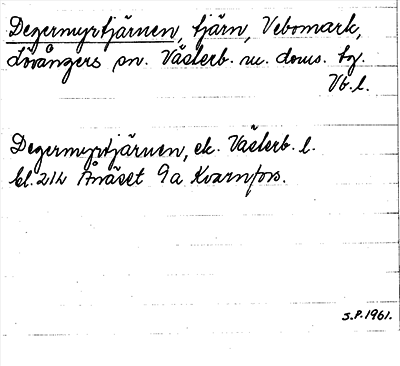 Degermyrtjärnen, tjärn, Vebomark,
Lövångers sn. Västerb. n. doms. tg.
Vb. l.
Degermyrtjärnen, ek. Västerb. l.
bl. 21L Ånäset 9a Kvarnfors.
S.P. 1961.